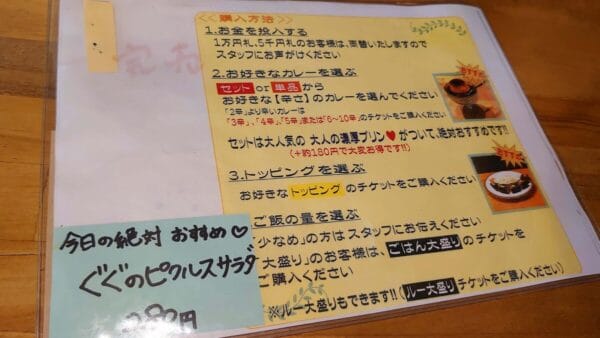 ＜＜購入方法＞＞
1.お金を投入する
1万円札、5千円札のお客様は、両替いたしますので
スタッフにお声がけください
2.お好きなカレーを選ぶ
セット or 単品 から
お好きな【辛さ】のカレーを選んでください
「2辛」より辛いカレーは
「3辛」、「4辛」、「5辛」または「6～10辛」のチケットをご購入ください
セットは大人気の 大人の濃厚プリン♥がついて、絶対おすすめです!!
(＋約180円で大変お得です!!)
3.トッピングを選ぶ
お好きなトッピングのチケットをご購入ください
ご飯の量を選ぶ
少なめ」の方はスタッフにお伝えください
大盛り」のお客様は、ごはん大盛りのチケットを
ご購入ください
※ルー大盛りもできます!!(ルー大盛りチケットをご購入ください)
今日の絶対 おすすめ♡
ぐぐのピクルスサラダ
280円